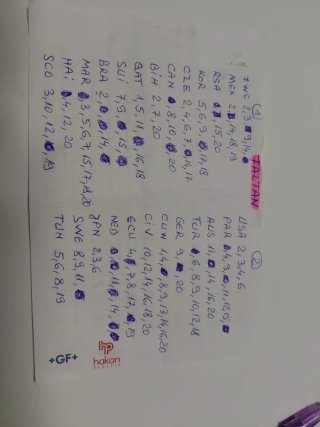 FALTAN
①
FWC 2,3, 9,14,
MEX 2, 14,18,19
RSA 15,20
KOR 5,6,9, 17,18
CZE 2,4,6,7, 14,17
CAN 8,10, 20
BIH 2,7,20
QAT 1,5,11, 16,18
SUI 7,9, 15,
BRA 2, 14,
MAR 3,5,6,7,15,17,18,20
HAi 4,12,20
SCO 3,10,12, 19
②
USA 2,3,4,6
PAR 4,9, 11,12,15,
AUS 11, 14,16,20
TUR 6,8,9,10,12,18
GER 9, 20
CUW 1,4, 8,9,13,14,16,20
CIV 10,12,14,16,18,20
ECU 4, 7,8,17, 19
NED 11, 14,
JPN 2,3,6
SWE 8,9,11,
TUN 5,6,8,19
+GF+
hakan